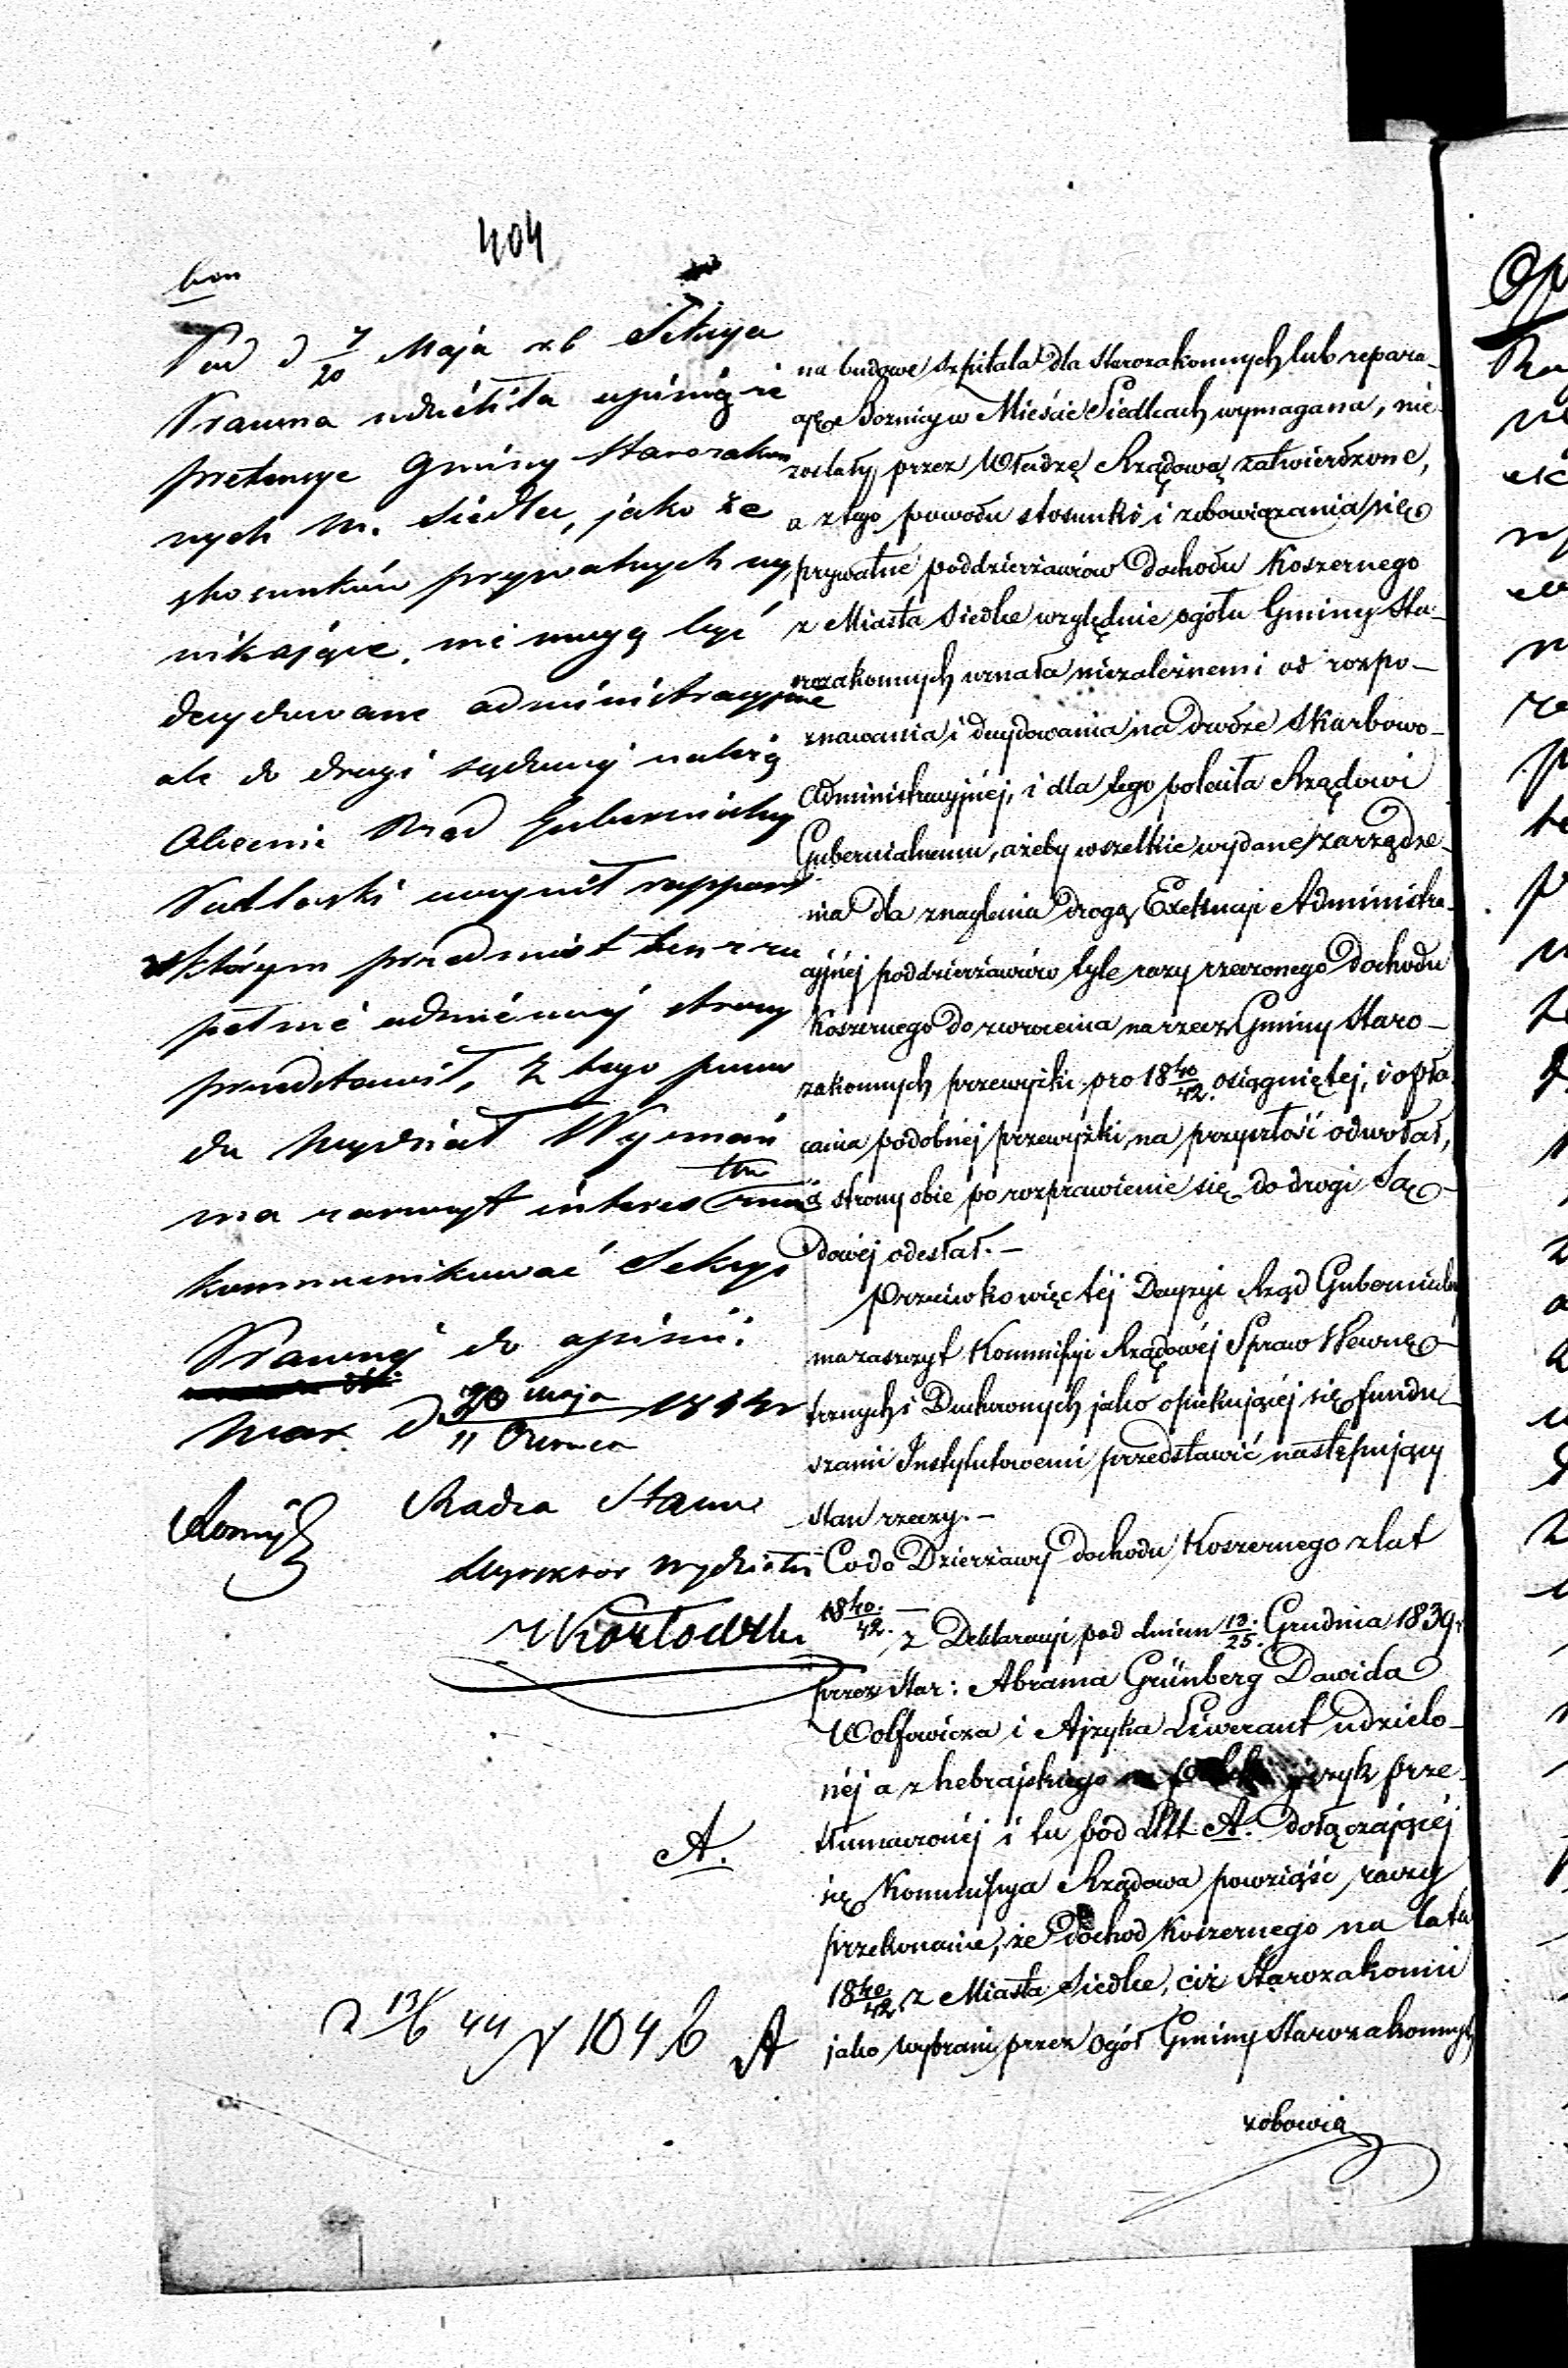 404
Pod d 7/20 Maja r.b. Sekcya
Prawna udzieliła opinią że
pretensye Gminy Starozakon
nych M. Siedlec, jako ze
stosunków prywatnych wy
nikające, nie mogą być
decydowane administracyjnie
ale do drogi sądowej należą
Obecnie Rząd Gubernialny
Podlaski uczynił rapport
w którym przedmiot ten zu
pełnie odmiennej strony
przedstawił, z tego powo
du Wydział Wyznań
ma zaszczyt interes ten
kommunikować Sekcyi
Prawnej do opinii.
War. d 30 Maja / 11 Czerwca 1844
Radca Stanu
Dyrektor Wydziału
A.
d 13/6 44 N 1046 A
na budowę szpitala dla Starozakonnych lub repara-
cyę Bożnicy w Mieście Siedlcach wymagana, nie-
zostały przez Władzę Rządową zatwierdzone,
a z tego powodu stosunki i zobowiązania się
prywatne poddzierżawców dochodu Koszernego
z Miasta Siedlec względnie ogółu Gminy Sta-
rozakonnych uznała niezależnemi od rozpo-
znawania i decydowania na drodze Skarbowo-
Administracyjnej, i dla tego poleciła Rządowi
Gubernialnemu, ażeby wszelkie wydane zarządze-
nia dla znaglenia drogą Exekucyi Administra-
cyjnej poddzierżawców tyle razy rzeczonego dochodu
Koszernego do zwrócenia na rzecz Gminy Staro-
zakonnych przewyżki pro 1840/42. osiągniętej, i opła-
cania podobnej przewyżki na przyszłość odwołał,
a strony obie po rozprawienie się do drogi Są-
dowej odesłał.-
Przeciwko więc tej Decyzyi Rząd Gubernialny
ma zaszczyt Kommissyi Rządowej Spraw Wewnę-
trznych i Duchownych jako opiekującej się fundu-
szami Instytutowemi przedstawić następujący
stan rzeczy.-
Co do Dzierżawy dochodu Koszernego z lat
1840./42. — z Deklaracyi pod dniem 13./25. Grudnia 1839 r.
przez Star: Abrama Grünberg Dawida
Wolfowicza i Ajzyka Liwerant udzielo-
nej a z hebrajskiego na polski język prze-
tłumaczonej i tu pod Litt. A. dołączającej
się Kommissya Rządowa powziąść raczy
przekonanie, że dochod Koszernego na lata
1840/42. z Miasta Siedlec, ciż Starozakonni
jako wybrani przez Ogół Gminy Starozakonnych
zobowią